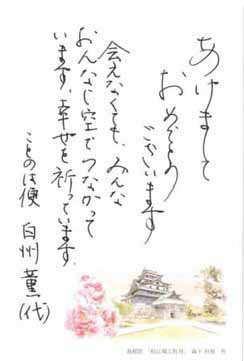 あけまして
おめでとう
ございます
会えなくても、みんな
おんなじ空でつながって
います。幸せを祈っています。
ことのは便 白州 薫(代)